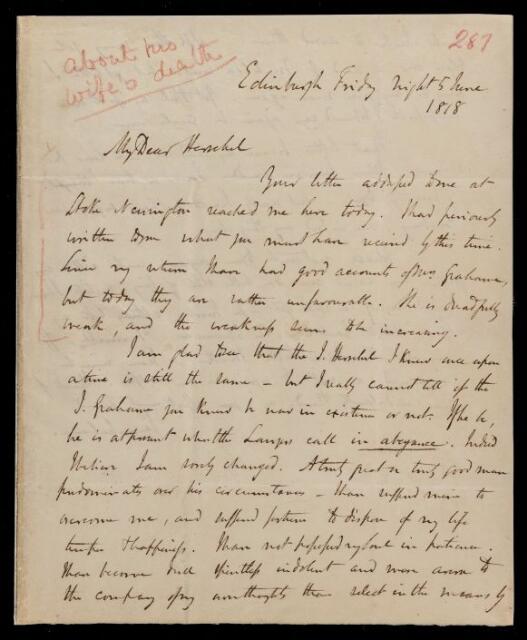 about his
wife's death
287
Edinburgh Friday night 5 June
1818
My Dear Herschel
Your letter addressed to me at
Stoke Newington reached me here today. I had previously
written to you what you must have received by this time.
Since my return I have had good accounts of Mrs. Grahame,
but today they are rather unfavourable. She is dreadfully
weak, and the weakness seems to be increasing.
I am glad to see that the J. Herschel I knew once upon
a time is still the same – but I really cannot tell if the
J. Grahame you knew be now in existence or not. If he be,
he is at present what the Lawyers call in abeyance. Indeed
I believe I am sorely changed. A truly great or truly good man
predominates over his circumstances – I have suffered mine to
overcome me, and suffered fortune to dispose of my life
temper & happiness. I have not possessed my soul in patience.
I have become dull spiritless indolent and more averse to
the company of my own thoughts than select in the means by